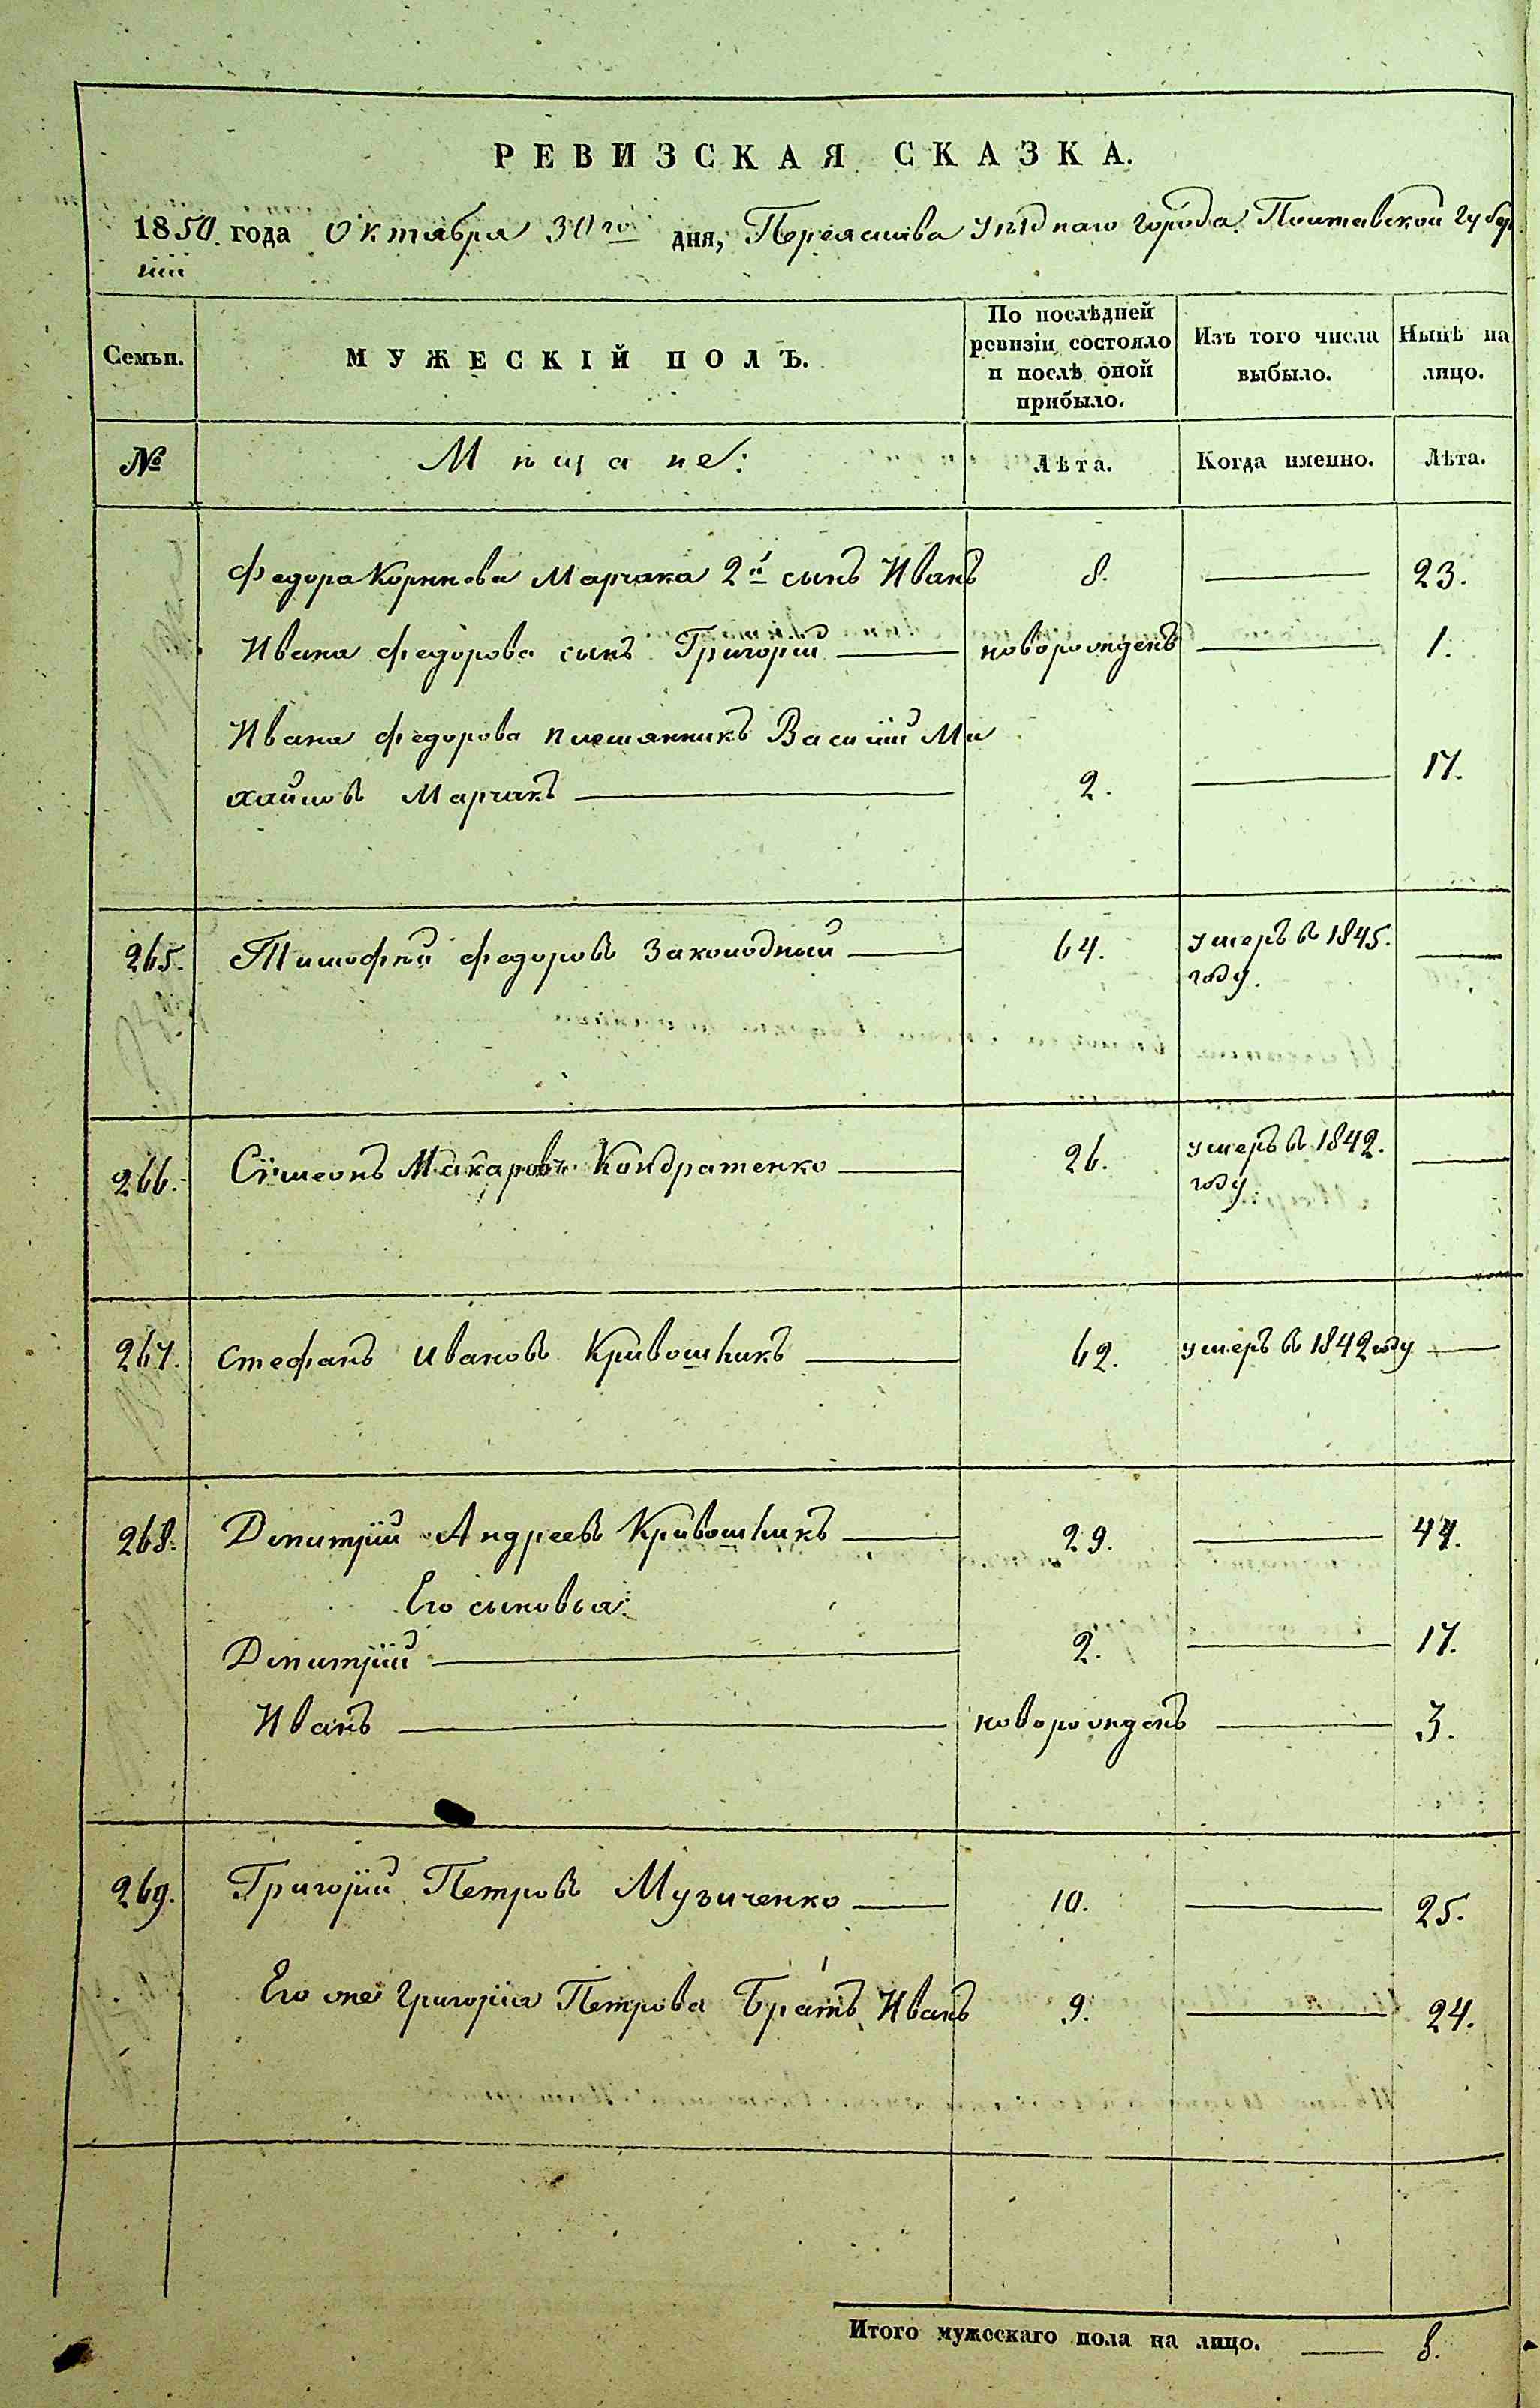 РЕВИЗСКАЯ СКАЗКА.
1850. года Октября 30го дня, Переяслава уѣзднаго города Полтавской Губер
ніи
Семьи.
МУЖЕСКІЙ ПОЛЪ.
По послѣдней
ревизіи состояло
и послѣ оной
прибыло.
Изъ того числа
выбыло.
Нынѣ на
лицо.
№
Мѣщане:
Лѣта.
Когда именно.
Лѣта.
Федора Корнѣева Марчака 2й сынъ Иванъ 8. 23.
Ивана Федорова сынъ Григорій новорожденъ 1.
Ивана Федорова племянникъ Василій Ми
хайловъ Марчакъ 2. 17.
265. Тимофѣй Федоровъ Заколодный 64. умеръ в 1845.
году.
266. Сѵмеонъ Макаровъ Кондратенко 26. умеръ в 1842.
году
267. Стефанъ Ивановъ Кривошѣикъ 62. умеръ в 1842 году
268. Дмитрій Андреевъ Кривошѣикъ 29. 44.
Его сыновья:
Дмитрій 2. 17.
Иванъ новорожденъ 3.
269. Григорій Петровъ Музиченко 10. 25.
Его же Григорія Петрова Братъ Иванъ 9. 24.
Итого мужескаго пола на лицо. 8.